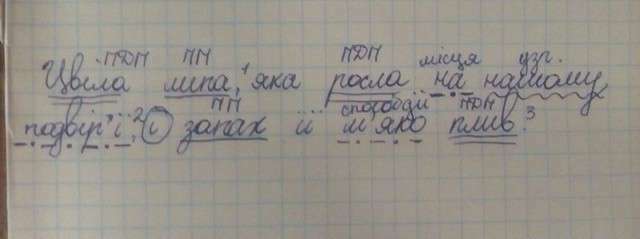 ПДП ПП ПДП місця узг.
Цвіла липа,¹ яка росла на нашому
ПП способу ПДП
подвір'ї,² і запах її м'яко плив.³